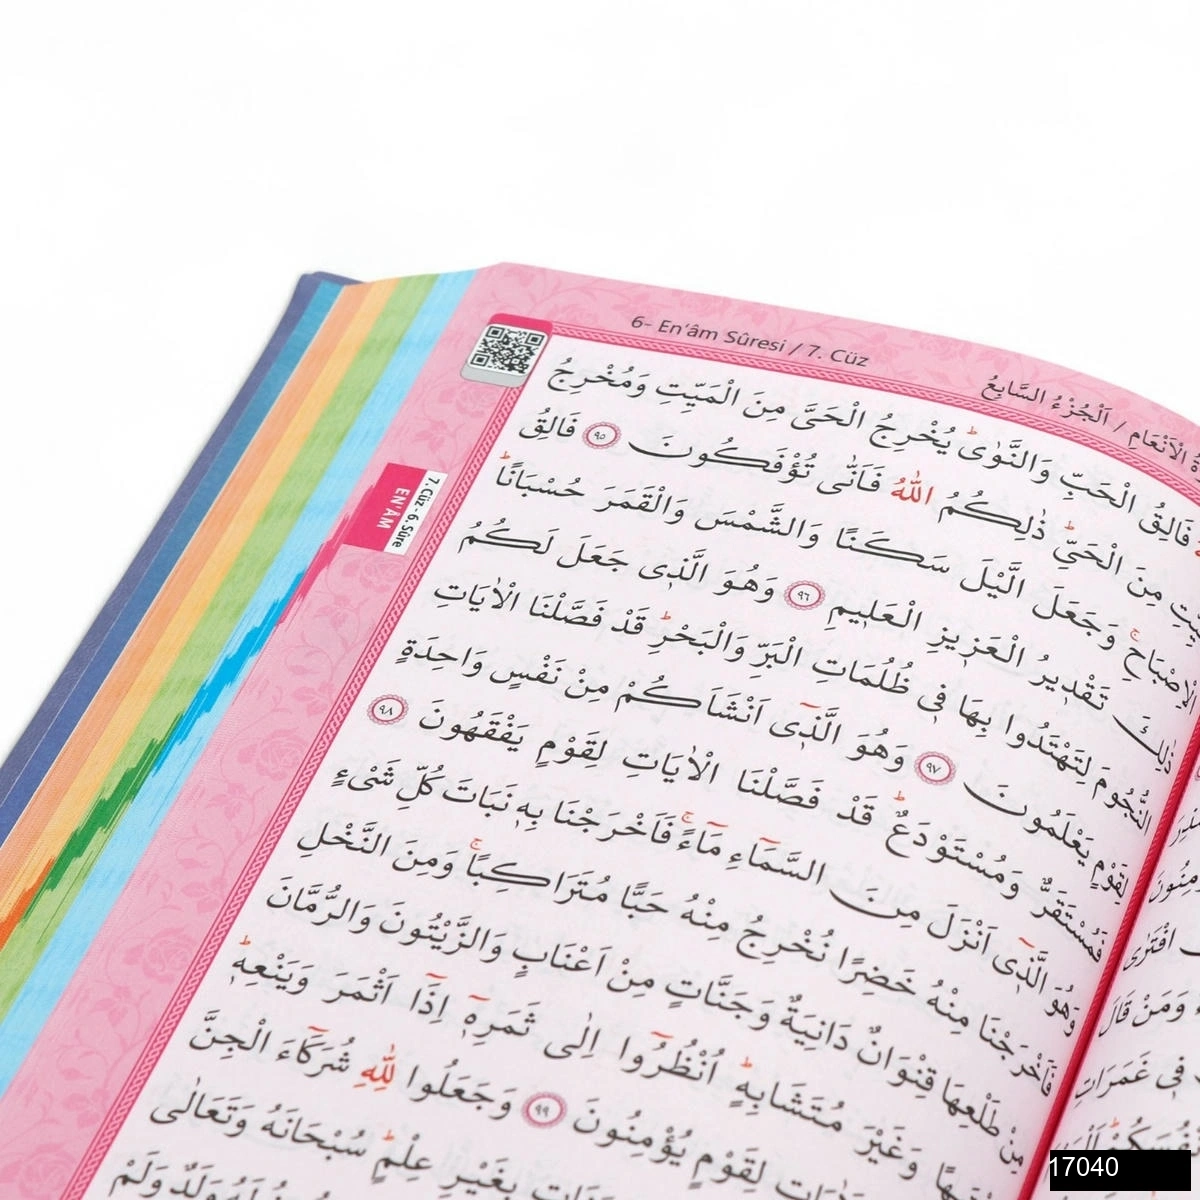 6- En'âm Sûresi / 7. Cüz
اَلْجُزْءُ السَّابِعُ / ةُ الْاَنْعَامِ
7. Cüz - 6. Sûre
EN'ÂM
فَالِقُ الْحَبِّ وَالنَّوٰىۜ يُخْرِجُ الْحَيَّ مِنَ الْمَيِّتِ وَمُخْرِجُ
مِنَ الْحَيِّۜ ذٰلِكُمُ اللّٰهُ فَاَنّٰى تُؤْفَكُونَ ﴿٩٥﴾ فَالِقُ
الْاِصْبَاحِۚ وَجَعَلَ الَّيْلَ سَكَنًا وَالشَّمْسَ وَالْقَمَرَ حُسْبَانًاۜ
ذٰلِكَ تَقْدٖيرُ الْعَزٖيزِ الْعَلٖيمِ ﴿٩٦﴾ وَهُوَ الَّذٖى جَعَلَ لَكُمُ
النُّجُومَ لِتَهْتَدُوا بِهَا فٖى ظُلُمَاتِ الْبَرِّ وَالْبَحْرِۜ قَدْ فَصَّلْنَا الْاٰيَاتِ
لِقَوْمٍ يَعْلَمُونَ ﴿٩٧﴾ وَهُوَ الَّذٖٓى اَنْشَاَكُمْ مِنْ نَفْسٍ وَاحِدَةٍ
فَمُسْتَقَرٌّ وَمُسْتَوْدَعٌۜ قَدْ فَصَّلْنَا الْاٰيَاتِ لِقَوْمٍ يَفْقَهُونَ ﴿٩٨﴾
وَهُوَ الَّذٖٓى اَنْزَلَ مِنَ السَّمَٓاءِ مَٓاءًۚ فَاَخْرَجْنَا بِهٖ نَبَاتَ كُلِّ شَىْءٍ
فَاَخْرَجْنَا مِنْهُ خَضِرًا نُخْرِجُ مِنْهُ حَبًّا مُتَرَاكِبًاۚ وَمِنَ النَّخْلِ
مِنْ طَلْعِهَا قِنْوَانٌ دَانِيَةٌ وَجَنَّاتٍ مِنْ اَعْنَابٍ وَالزَّيْتُونَ وَالرُّمَّانَ
وَغَيْرَ مُتَشَابِهٍۜ اُنْظُرُٓوا اِلٰى ثَمَرِهٖٓ اِذَٓا اَثْمَرَ وَيَنْعِهٖۜ
لِقَوْمٍ يُؤْمِنُونَ ﴿٩٩﴾ وَجَعَلُوا لِلّٰهِ شُرَكَٓاءَ الْجِنَّ
بِغَيْرِ عِلْمٍۜ سُبْحَانَهُ وَتَعَالٰى
وَلَدٌ وَلَمْ
افْتَرٰى
وَمَنْ قَالَ
فٖى غَمَرَاتِ
17040